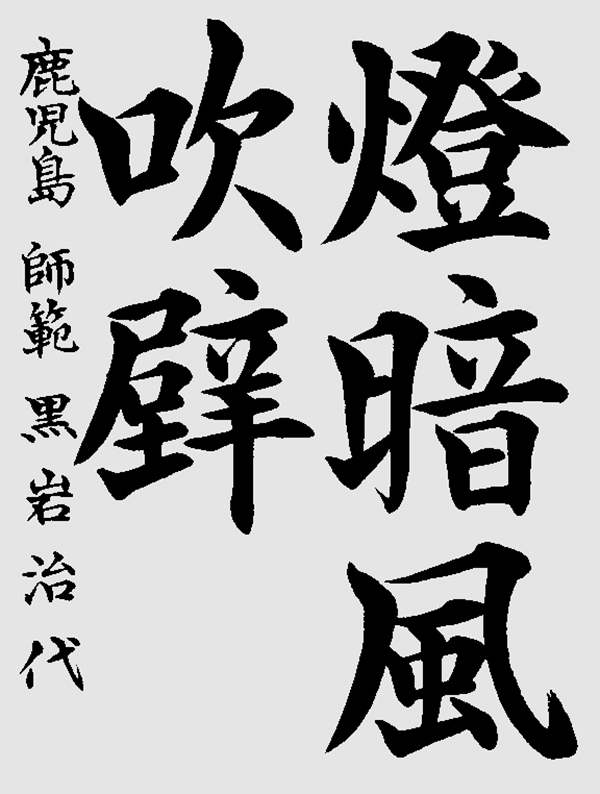 燈暗風
吹壁
鹿児島 師範 黒岩治代